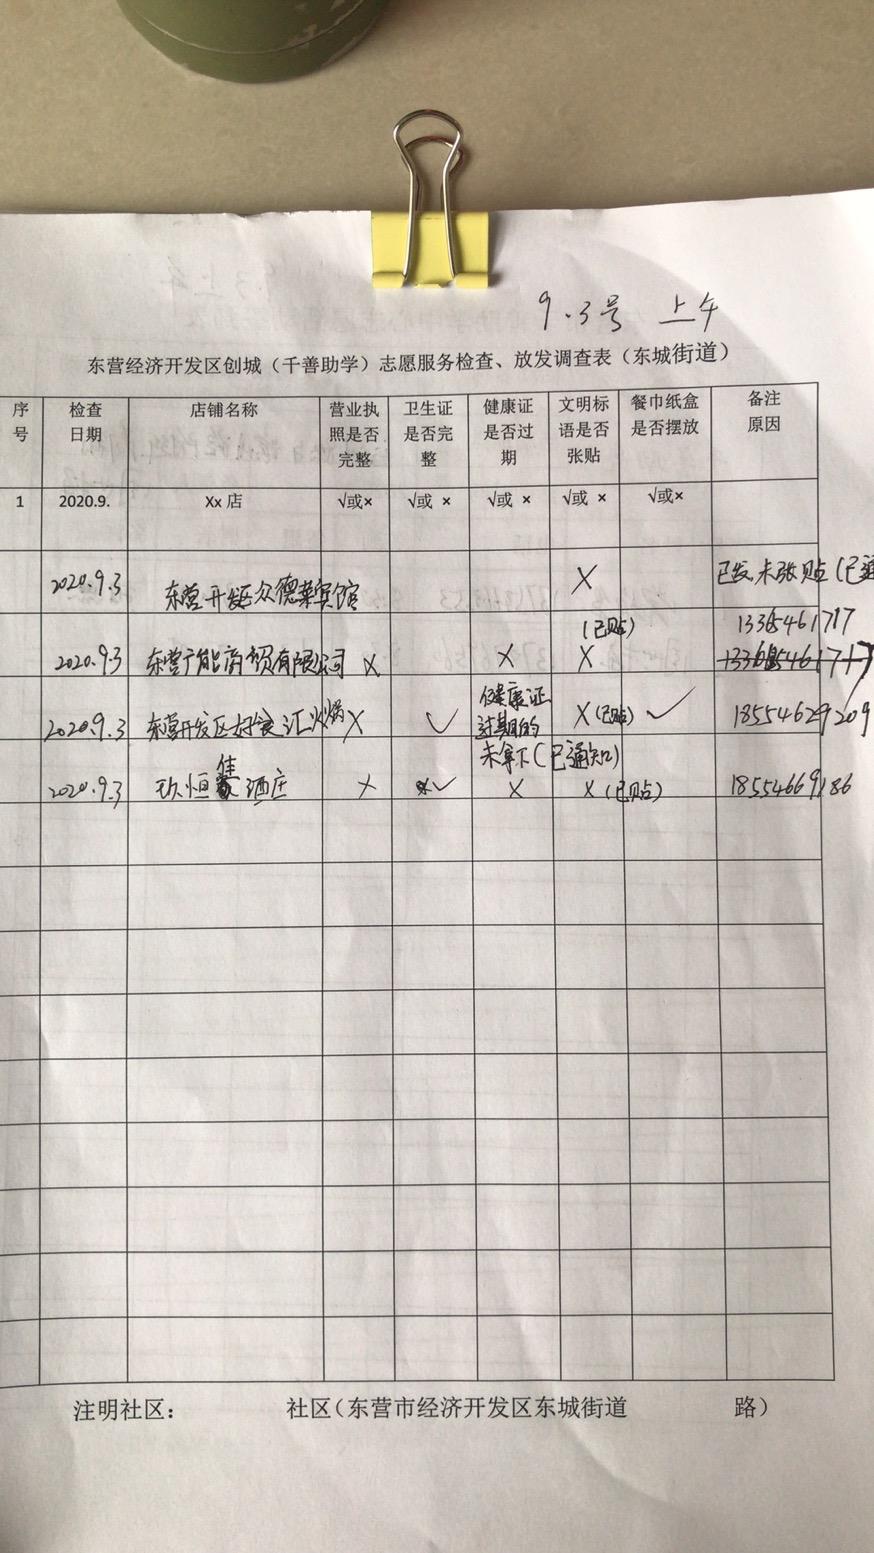 9.3号 上午
东营经济开发区创城（千善助学）志愿服务检查、放发调查表（东城街道）
序号 检查日期 店铺名称 营业执照是否完整 卫生证是否完整 健康证是否过期 文明标语是否张贴 餐巾纸盒是否摆放 备注原因
1 2020.9. Xx 店 √或× √或 × √或 × √或 × √或×
2020.9.3 东营开发区众德莱宾馆 × 已发,未张贴(已通
2020.9.3 东营广能商贸有限公司 × × × (已贴) 13365461717
2020.9.3 东营开发区好食汇火锅 × ✓ 健康证过期的未拿下(已通知) ×(已贴) ✓ 18554629209
2020.9.3 玖恒佳酒庄 × ✓ × ×(已贴) 18554669186
注明社区： 社区（东营市经济开发区东城街道 路）